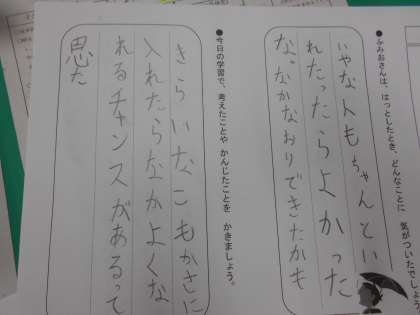 ●ふみおさんは、はっとしたとき、どんなことに 気がついたでしょう
いやな人もちゃんとい
れたったらよかった
な。なかなおりできたかも
●今日の学習で、考えたことや かんじたことを かきましょう。
きらいなこもかさに
入れたらなかよくな
れるチャンスがあるって
思た